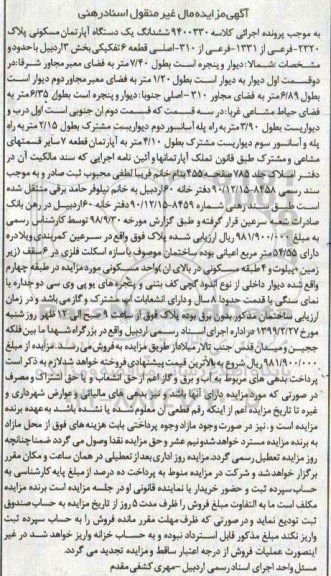 آگهی مزایده مال غیر منقول اسناد رهنی
به موجب پرونده اجرائی کلاسه ۹۴۰۰۳۳۰ ششدانگ یک دستگاه آپارتمان مسکونی پلاک
۲۳۲۰-فرعی از ۱۳۳۱-فرعی از ۳۱۰-اصلی قطعه ۶ تفکیکی بخش ۳ اردبیل با حدود و
مشخصات شمالا: دیوار و پنجره است بطول ۷/۴۰ متر به فضای معبر مجاور شرقا: در
دو قسمت اول دیوار به دیوار است بطول ۱/۲۰ متر به فضای معبر مجاور دوم دیوار است
بطول ۶/۸۹ متر به فضای مجاور ۳۱۰-اصلی جنوبا: دیوار و پنجره است بطول ۶/۳۵ متر به
فضای حیاط مشاعی غربا: در سه قسمت که قسمت دوم آن جنوبی است اول درب و
دیواریست بطول ۳/۹۰ متر به راه پله آسانسور دوم دیواریست مشترک بطول ۲/۱۵ متر به راه
پله و آسانسور سوم دیواریست مشترک بطول ۴/۱۰ متر به آپارتمان قطعه ۷ سایر قسمتهای
مشاعی و مشترک طبق قانون تملک آپارتمانها و آئین نامه اجرایی که سند مالکیت آن در
دفتر املاک جلد ۷۸۵ صفحه ۴۵۵ بنام خانم فریبا لطفی محبوب ثبت و صادر و به موجب
سند رسمی ۸۴۵۸-۹۰/۱۲/۱۵ دفتر خانه ۶۰ اردبیل به خانم نیلوفر حامد برقی منتقل شده
است طبق سند رهنی شماره ۸۴۵۹-۹۰/۱۲/۱۵ دفتر خانه ۶۰ اردبیل در رهن بانک
صادرات شعبه سرعین قرار گرفته و طبق گزارش مورخه ۹۸/۹/۳۰ توسط کارشناس رسمی
به مبلغ ۹۸۱/۹۰۰/۰۰۰ ریال ارزیابی شده پلاک فوق واقع در سرعین کمربندی ویلادره
دارای ۵۴/۵۵ متر مربع اعیانی بوده ساختمان موصوف با سازه اسکلت فلزی در ۶ سقف (زیر
زمین + پیلوت و ۴ طبقه مسکونی در بالای آن) واحد مسکونی مورد مزایده در طبقه چهارم
واقع شده دیوار داخلی از نوع اندود گچی کف بتنی و پنجره های یو پی وی سی دو جداره با
نمای سنگی با قدمت حدود ۸ سال و دارای انشعابات آب مشترک و گاز می باشد و در زمان
ارزیابی ساختمان مذکور بدون برق بوده پلاک فوق از ساعت ۹ صبح الی ۱۲ ظهر روز شنبه
مورخ ۱۳۹۹/۲/۲۷ در اداره اجرای اسناد رسمی اردبیل واقع در بزرگراه شهدا ما بین فلکه
ججین و میدان قدس جنب تالار میلاد از طریق مزایده به فروش می رسد. مزایده از مبلغ
۹۸۱/۹۰۰/۰۰۰ ریال شروع به بالاترین قیمت پیشنهادی فروخته خواهد شد لازم به ذکر است
پرداخت بدهی های مربوط به آب و برق و گاز اعم از حق انشعاب و یا حق اشتراک و مصرف
در صورتی که مورد مزایده دارای آنها باشد و نیز بدهی های مالیاتی و عوارض شهرداری و
غیره تا تاریخ مزایده اعم از اینکه رقم قطعی آن معلوم شده یا نشده باشد به عهده برنده
مزایده است و نیز در صورت وجود مازاد وجوه پرداختی بابت هزینه های فوق از محل مازاد
به برنده مزایده مسترد خواهد شد و نیم عشر و حق مزایده نقدا وصول می گردد ضمنا چنانچه
روز مزایده تعطیل رسمی گردد مزایده روز اداری بعد از تعطیلی در همان ساعت و مکان مقرر
برگزار خواهد شد و شرکت در مزایده منوط به پرداخت ده درصد از مبلغ پایه کارشناسی به
حساب سپرده ثبت و حضور خریدار یا نماینده قانونی او در جلسه مزایده است برنده مزایده
مکلف است ما به التفاوت مبلغ فروش را ظرف مدت ۵ روز از تاریخ مزایده به حساب صندوق
ثبت تودیع نماید و در صورتی که ظرف مهلت مقرر مانده فروش را به حساب سپرده ثبت
واریز نکند مبلغ مذکور قابل استرداد نبوده و به حساب خزانه واریز خواهد شد در غیر
اینصورت عملیات فروش از درجه اعتبار ساقط و مزایده تجدید می گردد.
مسئل واحد اجرای اسناد رسمی اردبیل -مهری کشفی مقدم